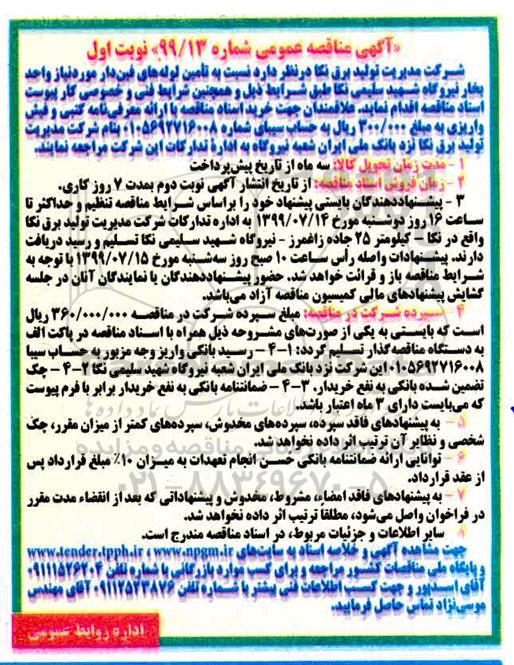 «آگهی مناقصه عمومی شماره ۹۹/۱۳» نوبت اول
شرکت مدیریت تولید برق نکا درنظر دارد نسبت به تأمین لوله‌های فین‌دار موردنیاز واحد
بخار نیروگاه شهید سلیمی نکا طبق شرایط ذیل و همچنین شرایط فنی و خصوصی کار پیوست
اسناد مناقصه اقدام نماید. علاقمندان جهت خرید اسناد مناقصه با ارائه معرفی‌نامه کتبی و فیش
واریزی به مبلغ ۳۰۰/۰۰۰ ریال به حساب سیبای شماره ۰۱۰۵۶۹۲۷۱۶۰۰۸ بنام شرکت مدیریت
تولید برق نکا نزد بانک ملی ایران شعبه نیروگاه به اداره تدارکات این شرکت مراجعه نمایند.
۱ - مدت زمان تحویل کالا: سه ماه از تاریخ پیش‌پرداخت
۲ - زمان فروش اسناد مناقصه: از تاریخ انتشار آگهی نوبت دوم بمدت ۷ روز کاری.
۳ - پیشنهاددهندگان بایستی پیشنهاد خود را براساس شرایط مناقصه تنظیم و حداکثر تا
ساعت ۱۶ روز دوشنبه مورخ ۱۳۹۹/۰۷/۱۴ به اداره تدارکات شرکت مدیریت تولید برق نکا
واقع در نکا - کیلومتر ۲۵ جاده زاغمرز - نیروگاه شهید سلیمی نکا تسلیم و رسید دریافت
دارند. پیشنهادات واصله رأس ساعت ۱۰ صبح روز سه‌شنبه مورخ ۱۳۹۹/۰۷/۱۵ با توجه به
شرایط مناقصه باز و قرائت خواهد شد. حضور پیشنهاددهندگان یا نمایندگان آنان در جلسه
گشایش پیشنهادهای مالی کمیسیون مناقصه آزاد می‌باشد.
۴ - سپرده شرکت در مناقصه: مبلغ سپرده شرکت در مناقصه ۳۶۰/۰۰۰/۰۰۰ ریال
است که بایستی به یکی از صورت‌های مشروحه ذیل همراه با اسناد مناقصه در پاکت الف
به دستگاه مناقصه گذار تسلیم گردد: ۱-۴ - رسید بانکی واریز وجه مزبور به حساب سیبا
۰۱۰۵۶۹۲۷۱۶۰۰۸ این شرکت نزد بانک ملی ایران شعبه نیروگاه شهید سلیمی نکا ۲-۴ - چک
تضمین شده بانکی به نفع خریدار. ۳-۴ - ضمانتنامه بانکی به نفع خریدار برابر با فرم پیوست
که می‌بایست دارای ۳ ماه اعتبار باشد.
۵ - به پیشنهادهای فاقد سپرده، سپرده‌های مخدوش، سپرده‌های کمتر از میزان مقرر، چک
شخصی و نظایر آن ترتیب اثر داده نخواهد شد.
۶ - توانایی ارائه ضمانتنامه بانکی حسن انجام تعهدات به میزان ۱۰٪ مبلغ قرارداد پس
از عقد قرارداد.
۷ - به پیشنهادهای فاقد امضاء، مشروط، مخدوش و پیشنهاداتی که بعد از انقضاء مدت مقرر
در فراخوان واصل می‌شود، مطلقا ترتیب اثر داده نخواهد شد.
۸ سایر اطلاعات و جزئیات مربوط، در اسناد مناقصه مندرج است.
جهت مشاهده آگهی و خلاصه اسناد به سایت‌های www.npgm.ir ، www.tender.tpph.ir
و پایگاه ملی مناقصات کشور مراجعه و برای کسب موارد بازرگانی با شماره تلفن ۰۹۱۱۱۵۲۶۲۰۴
آقای اسدپور و جهت کسب اطلاعات فنی بیشتر با شماره تلفن ۰۹۱۱۲۵۲۳۸۷۶ آقای مهندس
موسی‌نژاد تماس حاصل فرمایید.
اداره روابط عمومی
۰۲۱-۸۸۳۴۹۶۷۰-۵